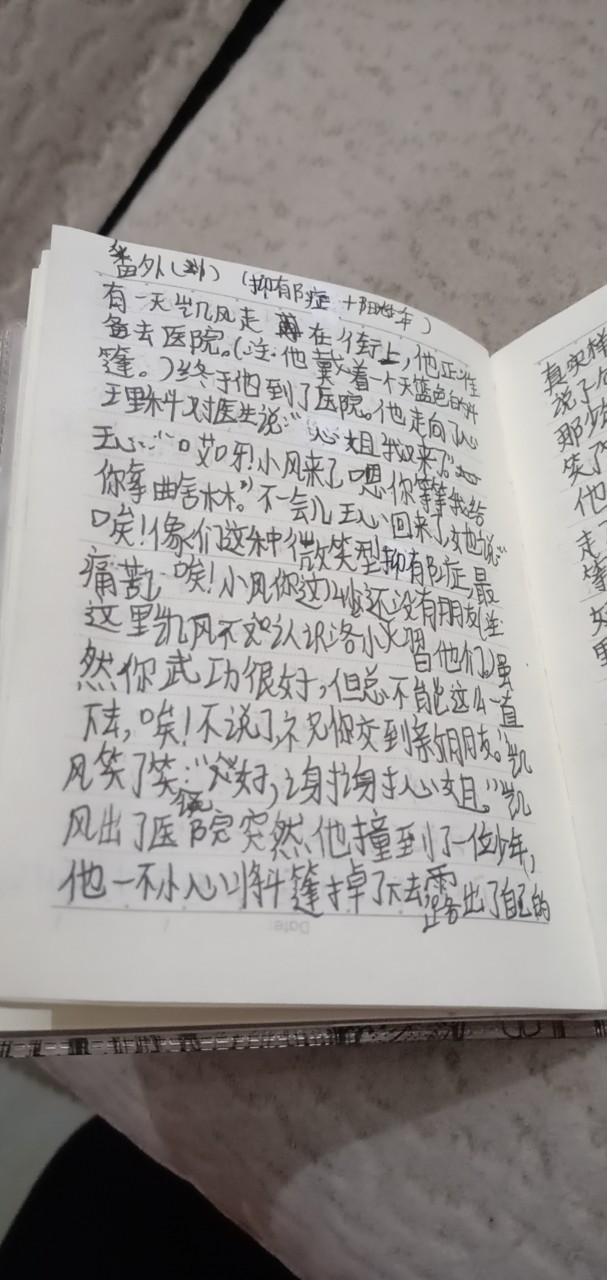 番外（  ）（抑有阝症＋阳性年）
有一天凯风走 在街上，他正准
备去医院。（注：他戴着一个天蓝色的斗
篷。）终于他到了医院。他走向了心
王里科对医生说：“心姐我又来了。”
王心：“哎呀！小风来了嗯你等等我给
你拿曲奇。”不一会儿王心回来了她说：“
唉！像们这种微笑型抑有阝症，最
痛苦。唉！小风你这么些还没有朋友（注
这里凯风不认识洛小火 他们）虽
然你武功很好，但总不能这么一直
下去，唉！不说了，祝你交到新朋友。”凯
风笑了笑：“好，谢谢心姐。”凯
风出了医院突然他撞到了一位少年，
他一不小心斗篷掉了下去露出了自己的
真实样
说了句
那少
笑了
他
走
等